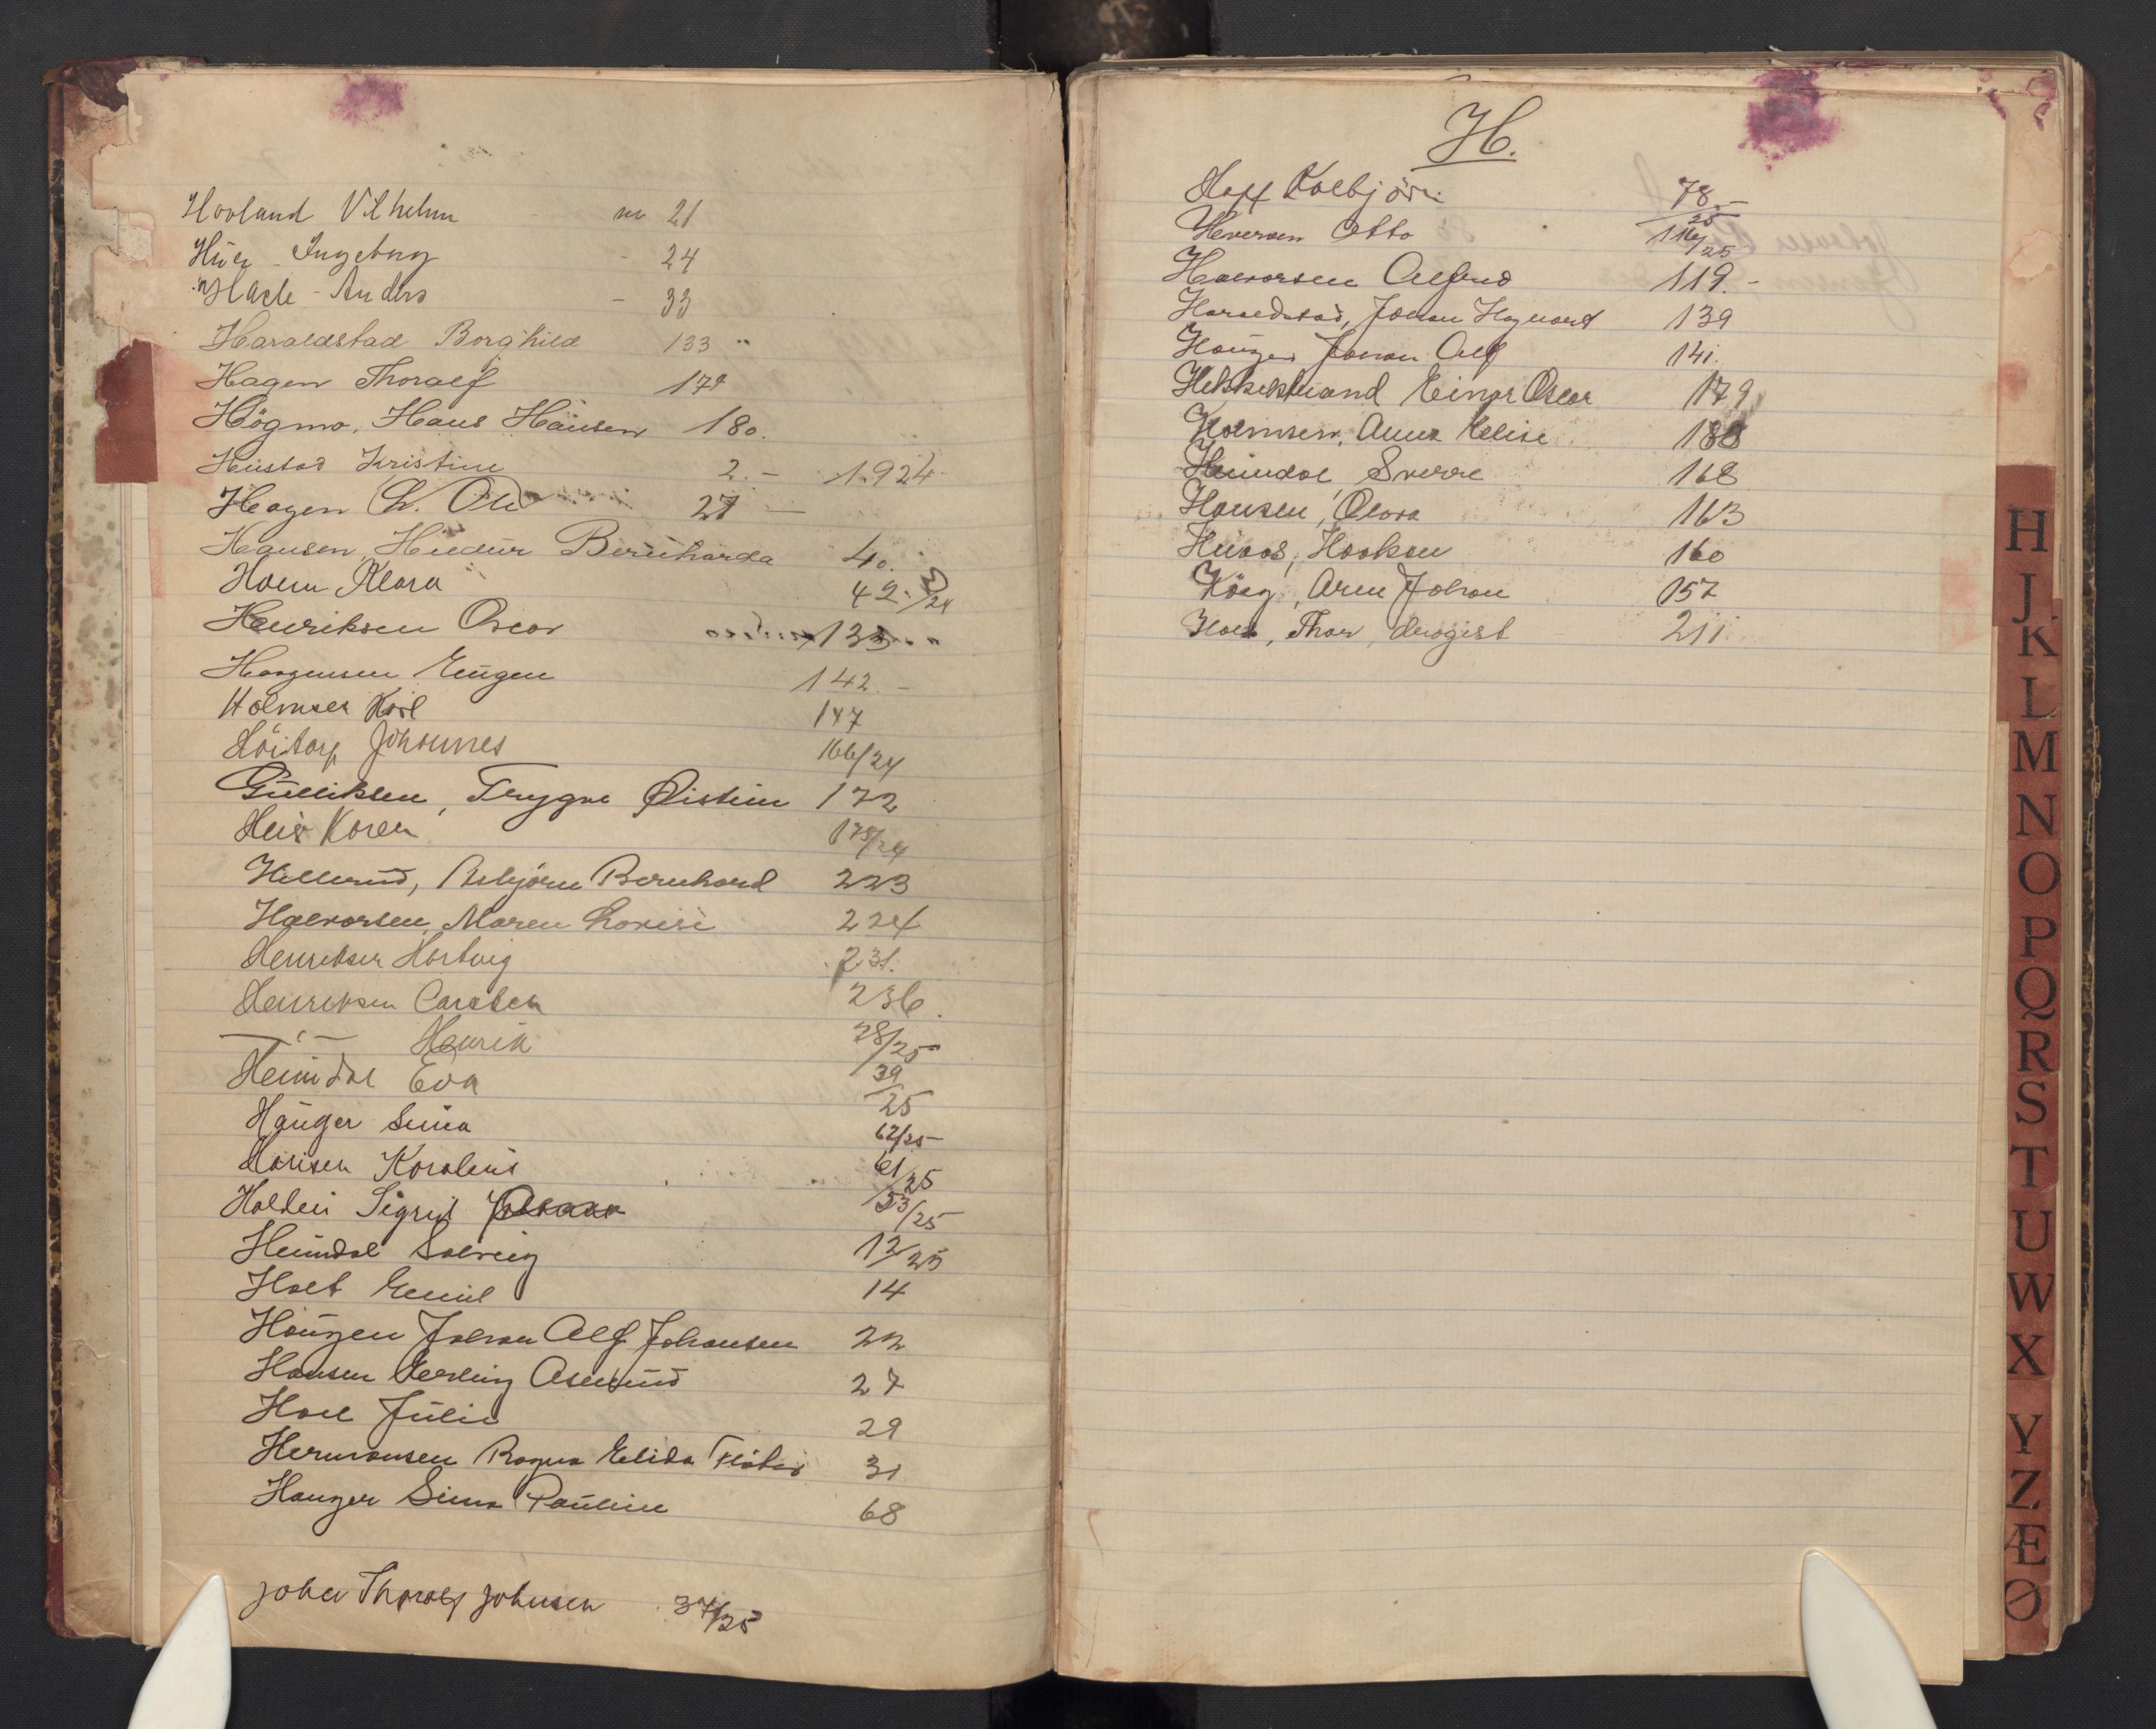 Hovland Vilhelm nr 21
Ingeborg - 24
Anders - 33
Haraldstad Borghild 133 "
Hagen Thoralf 174
Högmo, Hans Hansen 180.
Hustad Kristine 2.- 1924
Hagen Chr. 27 —
Hansen, Bernharda 40.
Holm Klara 42./24
Henriksen Oscar 133 "
Haagensen Eugen 142.-
Holmsen Karl 147
Höitorp Johannes 166/24
Gulliksen, Trygve Øistein 172
Karen 175/24
Hillerud, Asbjørn Bernhard 223
Halvorsen, Maren Lovise 224
Henriksen Hartvig 231.
Henriksen Carsten 236.
—"— Henrik 28/25
Heimdal Eva 39/25
Hauger Sina 62/25
Karoline 61/25
Holden Sigrid 53/25
Heimdal Solveig 12/25
Holt Emil 14
Haugen Johan Alf Johansen 22
Hansen Erling Asmund 27
Hoel Julie 29
Hermansen Ragna Elida 31
Hauger Sina Pauline 68
Johan Thoralf Johnsen 34/25
H.
Hoff Kolbjörn 78.-/25
Otto 116/25
Halvorsen Alfred 119.-
Haraldstad, Johan Hagvart 139
Haugen Johan Alf 141.
Einar Oscar 179
Holmsen, Anna Elise 188
Heimdal, Sverre 168
Hansen, Olava 163
Haakon 160
Arne Johan 157
Thor, drogist 211
H
J
K
L
M
N
O
P
Q
R
S
T
U
W
X
Y
Z
Æ
Ø